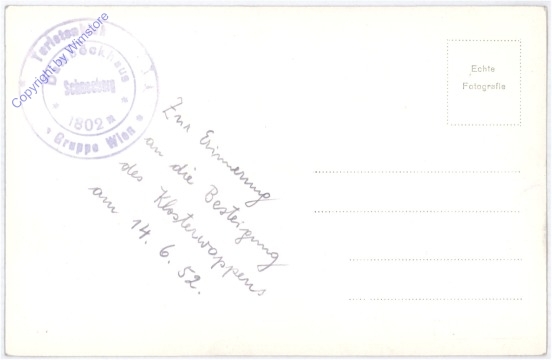 Copyright by Wimstore
Schneeberg
1802 m
Gruppe Wien
Echte
Fotografie
Zur Erinnerung
an die Besteigung
des Klosterwappens
am 14. 6. 52.